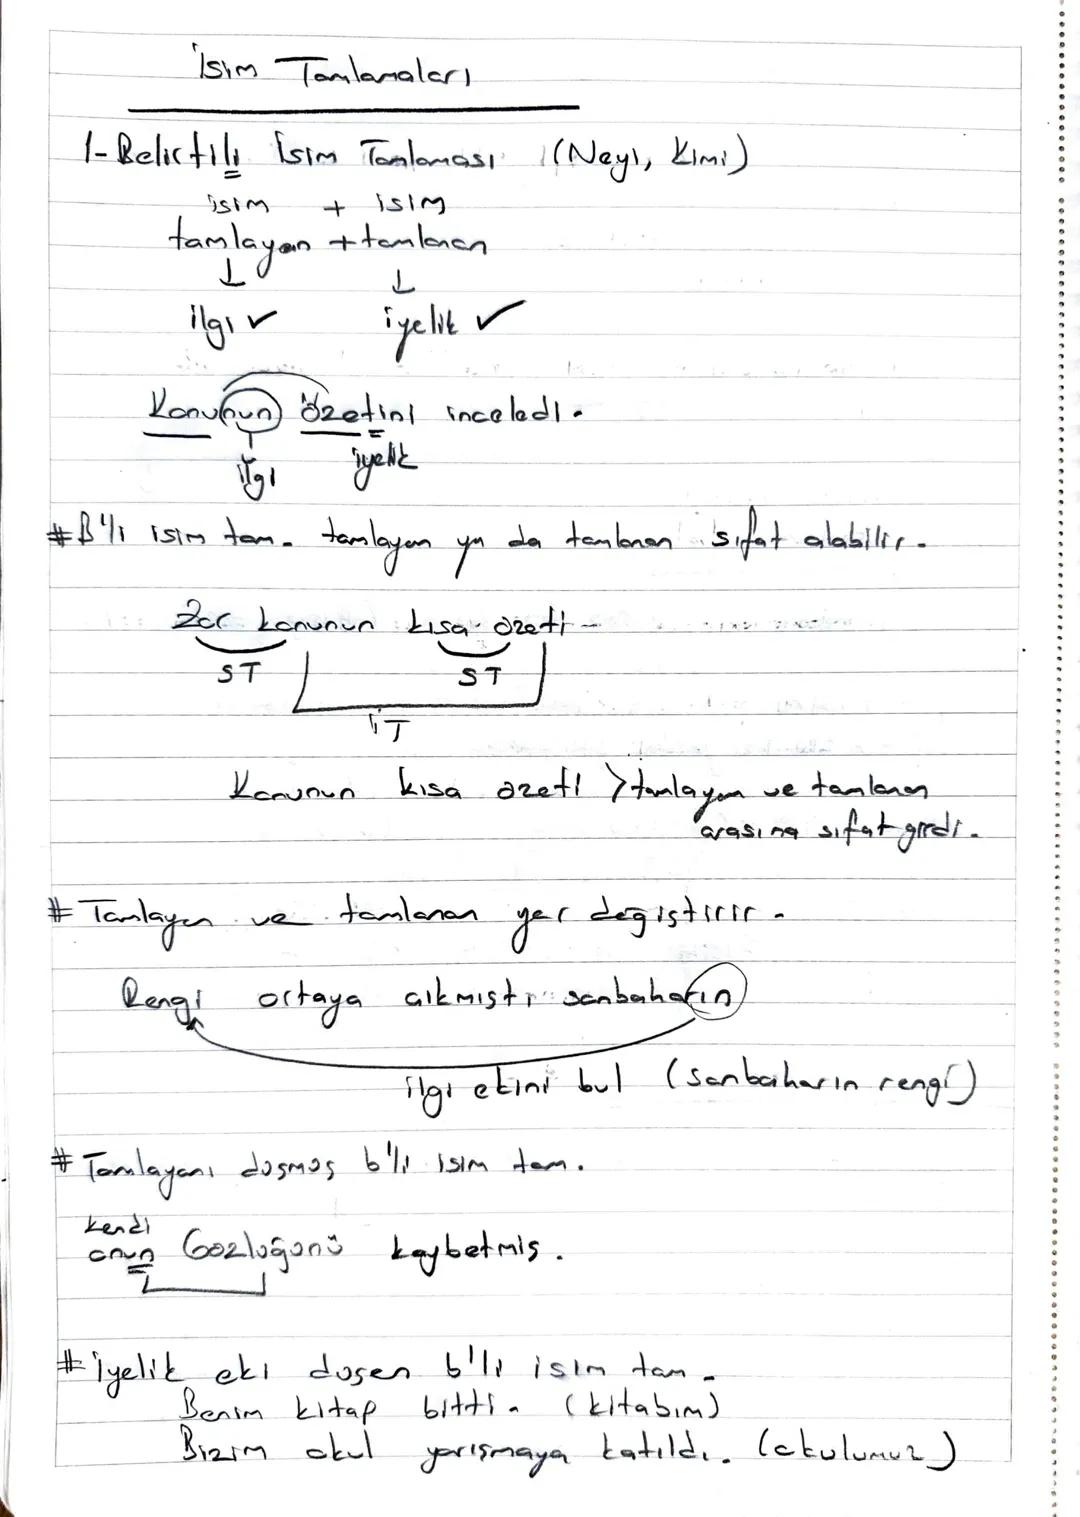 İsim Tamlamaları
1- Belirtili İsim Tamlaması (Neyi, Kimi)
isim + isim
tamlayan + tamlanan
↓ ↓
ilgi ✓ iyelik ✓
Konunun özetini inceledi.
ilgi iyelik
# B'li isim tam. tamlayan ya da tamlanan sıfat alabilir.
Zor konunun kısa özeti
ST ST
İT
Konunun kısa özeti > tamlayan ve tamlanan
arasına sıfat girdi.
# Tamlayan ve tamlanan yer değiştirir.
Rengi ortaya çıkmıştı sonbaharın
ilgi ekini bul (sonbaharın rengi)
# Tamlayanı düşmüş b'li isim tam.
kendi
onun Gözlüğünü kaybetmiş.
# İyelik eki düşen b'li isim tam.
Benim kitap bitti. (kitabım)
Bizim okul yarışmaya katıldı. (okulumuz)